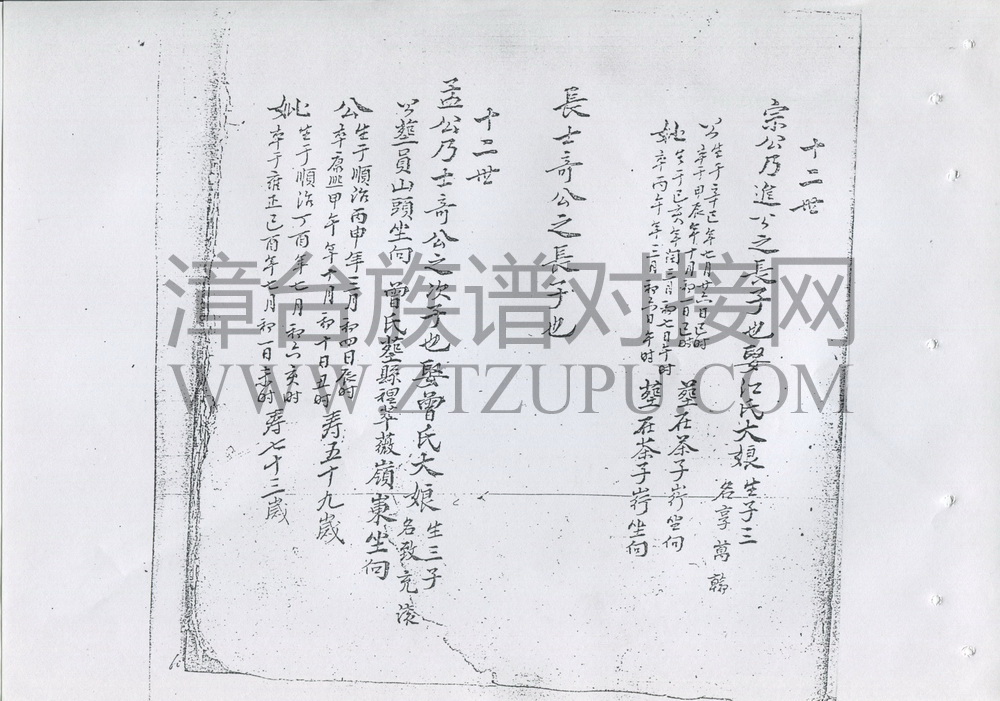 十二世
宗公乃進公之長子也娶江氏大娘生子三
名享萬
公生于辛巳年七月廿六日巳时
卒于甲辰年十月初一日巳时
葬在茶子岃坐向
妣生于已亥年闰三月初七日午时
卒丙午年三月初六日午时
葬在茶子岃坐向
長士奇公之長子也
十二世
孟公乃士奇公之次子也娶曾氏大娘生三子
名致充
公葬員山頭坐向 曾氏葬縣裡翠薇嶺東坐向
公生于順治丙申年三月初四日辰时
卒康熙甲午年十月初十日丑时
寿五十九歲
妣生于順治丁酉年七月初六亥时
卒于雍正已酉年七月初一日未时
寿七十三歲
漳台族谱对接网
WWW.ZTZUPU.COM